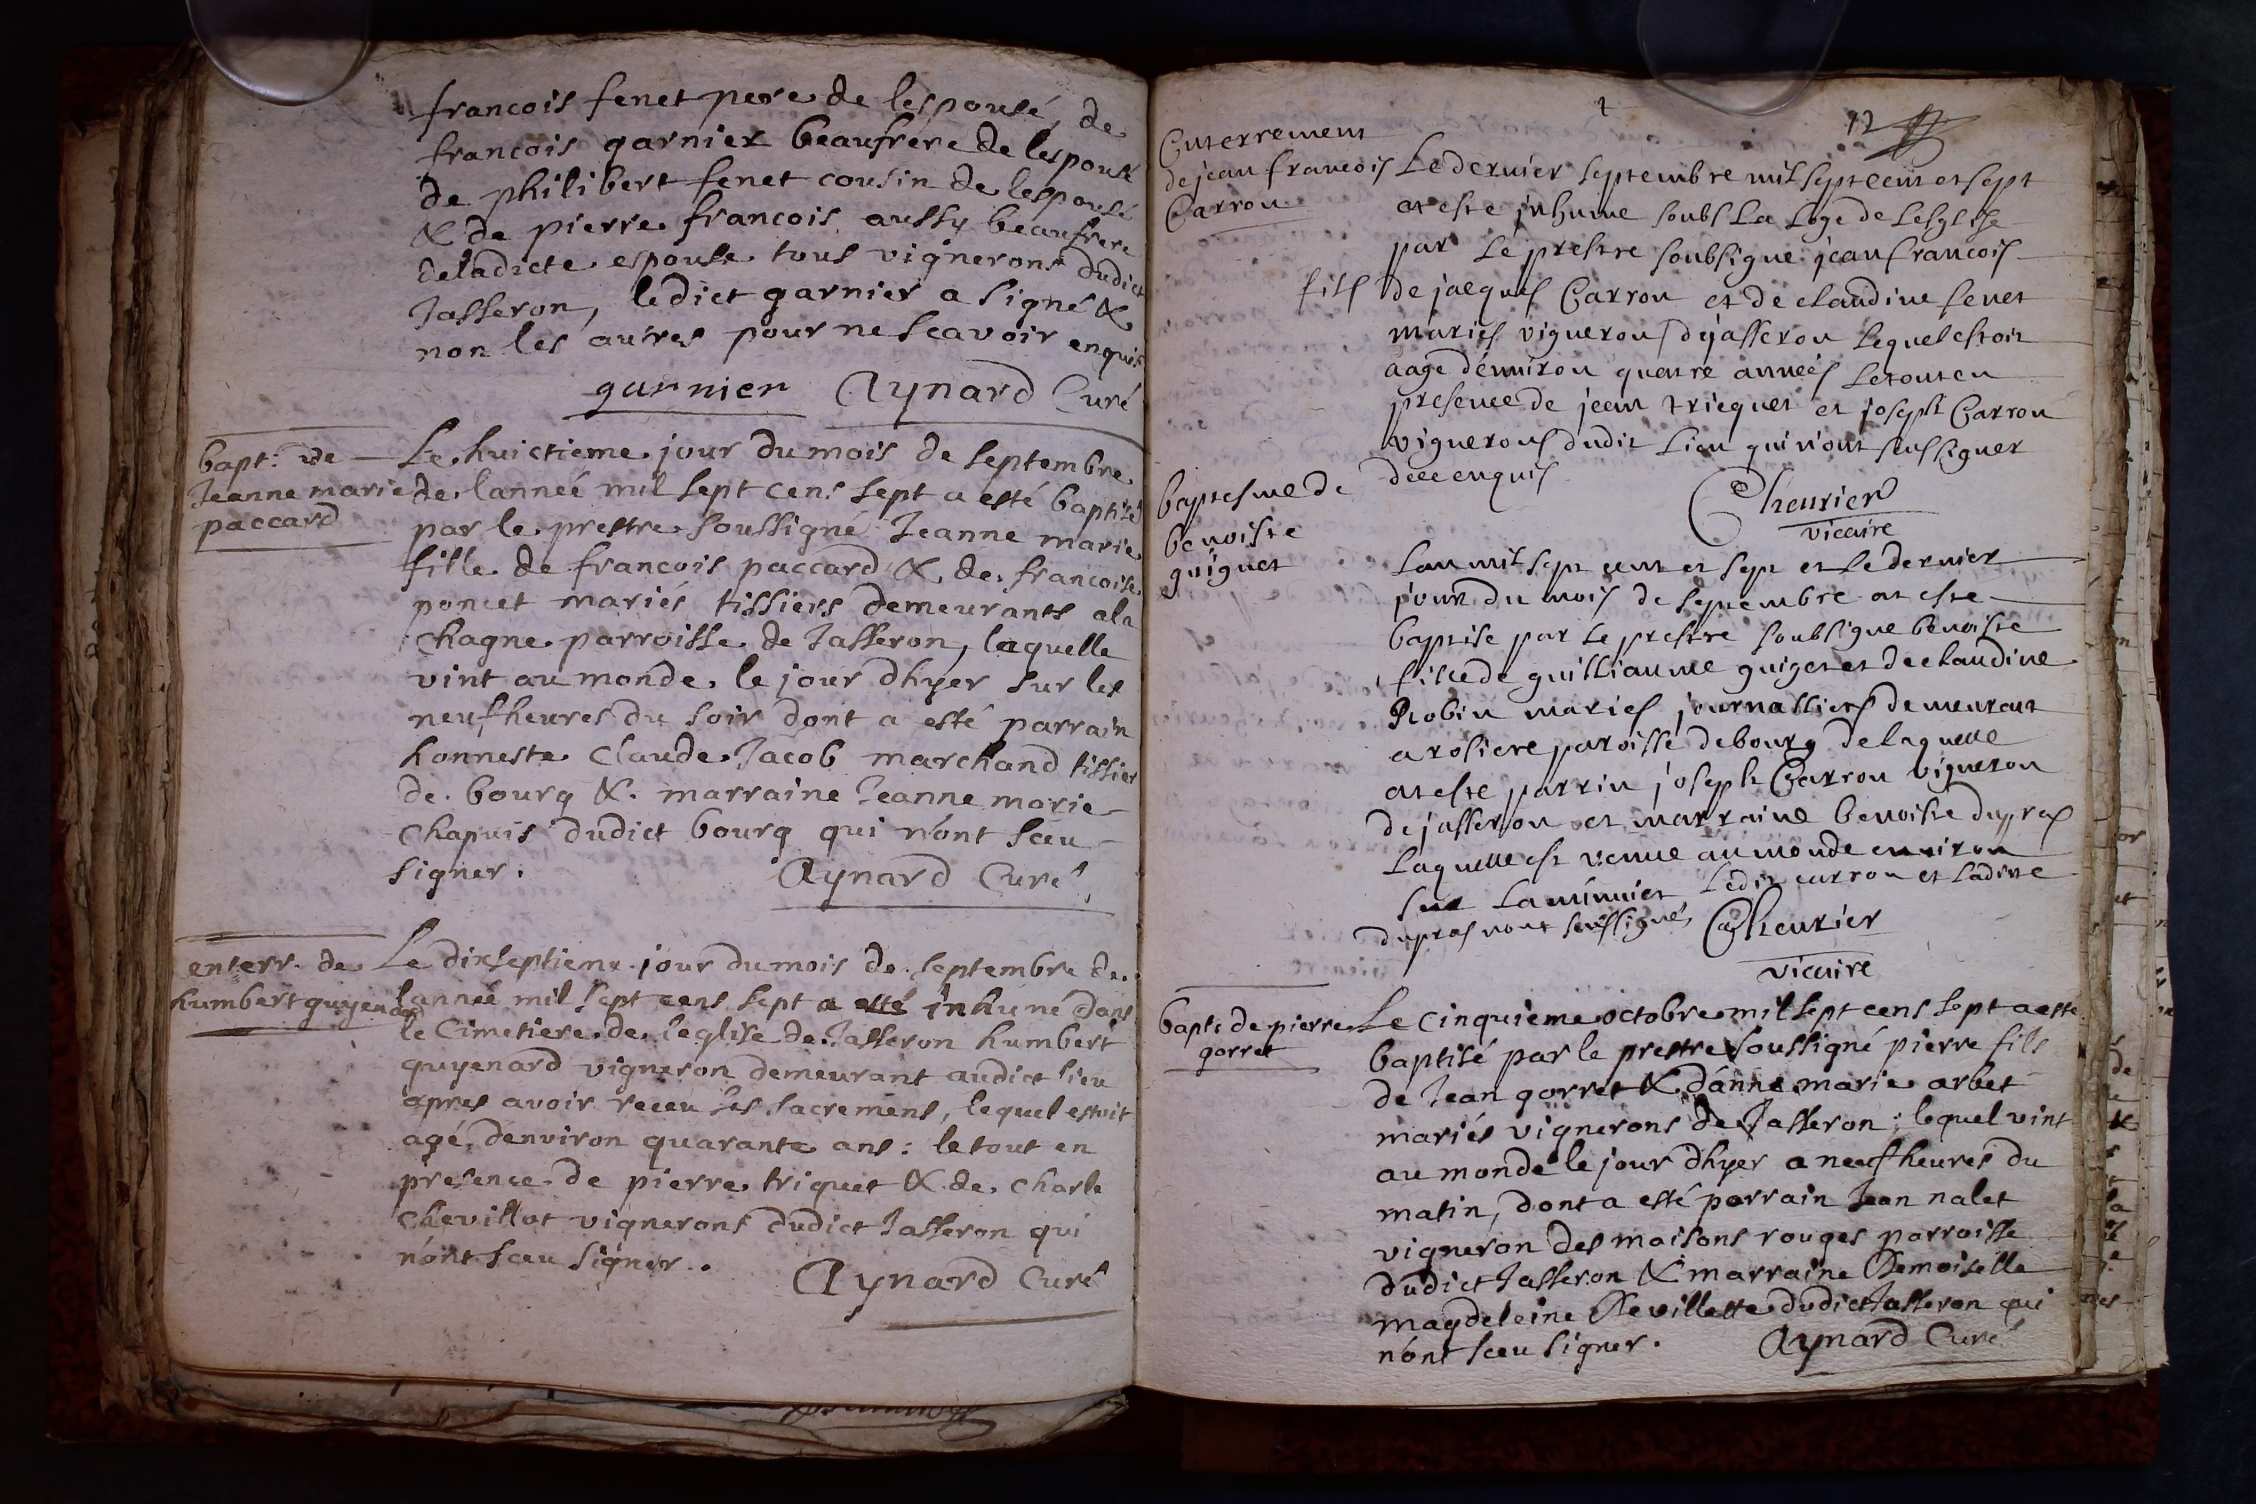 francois fenet pere de lespousé, de
francois garnier beaufrere de lespousé
de philibert fenet cousin de lespousé
& de pierre francois aussy beaufrere
deladicte espouse tous vignerons dudict
Jasseron, ledict garnier a signé &
non les autres pour ne scavoir enquis
garnier Aynard Curé
bapt: de
Jeanne marie
paccard
Le huictieme jour du mois de septembre
de lanneé mil sept cens sept a esté baptisé
par le prestre soussigné Jeanne marie
fille de francois paccard & de francoise
poncet mariés tissiers demeurants a la
chagne parroisse de Jasseron, laquelle
vint au monde le jour dhyer sur les
neufheures du soir dont a esté parrain
honneste Claude Jacob marchand tissier
de bourg & marraine Jeanne marie
chapuis dudict bourg qui n'ont sceu
signer. Aynard Curé
enterr. de
humbert guyenard
Le dixseptieme jour du mois de septembre de
lanneé mil sept cens sept a esté inhumé dans
le Cimetiere de leglise de Jasseron humbert
guyenard vigneron demeurant audict lieu
apres avoir receu les sacremens, lequel estoit
agé denviron quarante ans: le tout en
presence de pierre triquet & de charle
chevillot vignerons dudict Jasseron qui
n'ont sceu signer. Aynard Curé
12
Enterrement
de jean francois
Carron
Le dernier septembre mil sept cent et sept
at este jnhume soubs La loge de Lesglise
par Le prestre soubsigne jean francois
fils de jacques Carron et de claudine fenet
maries vignerons dejasseron Lequel estoit
aage dénuiron quatre anneés Letout en
presence de jean tricquet et joseph Carron
vignerons dudit Lieu qui n'ont seu signer
dece enquis
Cheurier
vicaire
baptesme de
benoiste
guiguet
Lan mil sept cent et sept et Le dernier
jour du mois de septembre at este
baptise par Le prestre soubsigne benoiste
fille de guilliaume guiget et de claudine
Robin maries journalliers demeurant
a rosiere paroisse de bourg de laquelle
at este parrin joseph Carron vigneron
de jasseron et marraine benoiste dupras
Laquelle est venue au monde enuiron
sur La minuict Ledit carron et Ladite
dupras n'ont seu signé, Cheurier
vicaire
bapt: de pierre
gorret
Le Cinquieme octobre mil sept cens sept a esté
baptisé par le prestre soussigné pierre fils
de Jean gorret & d'anne marie arbet
mariés vignerons de Jasseron; lequel vint
au monde le jour dhyer a neufheures du
matin, dont a esté parrain Jean nalet
vigneron des maisons rouges parroisse
dudict Jasseron & marraine Demoiselle
magdeleine Chevillette dudict Jasseron qui
n'ont sceu signer. Aynard Curé